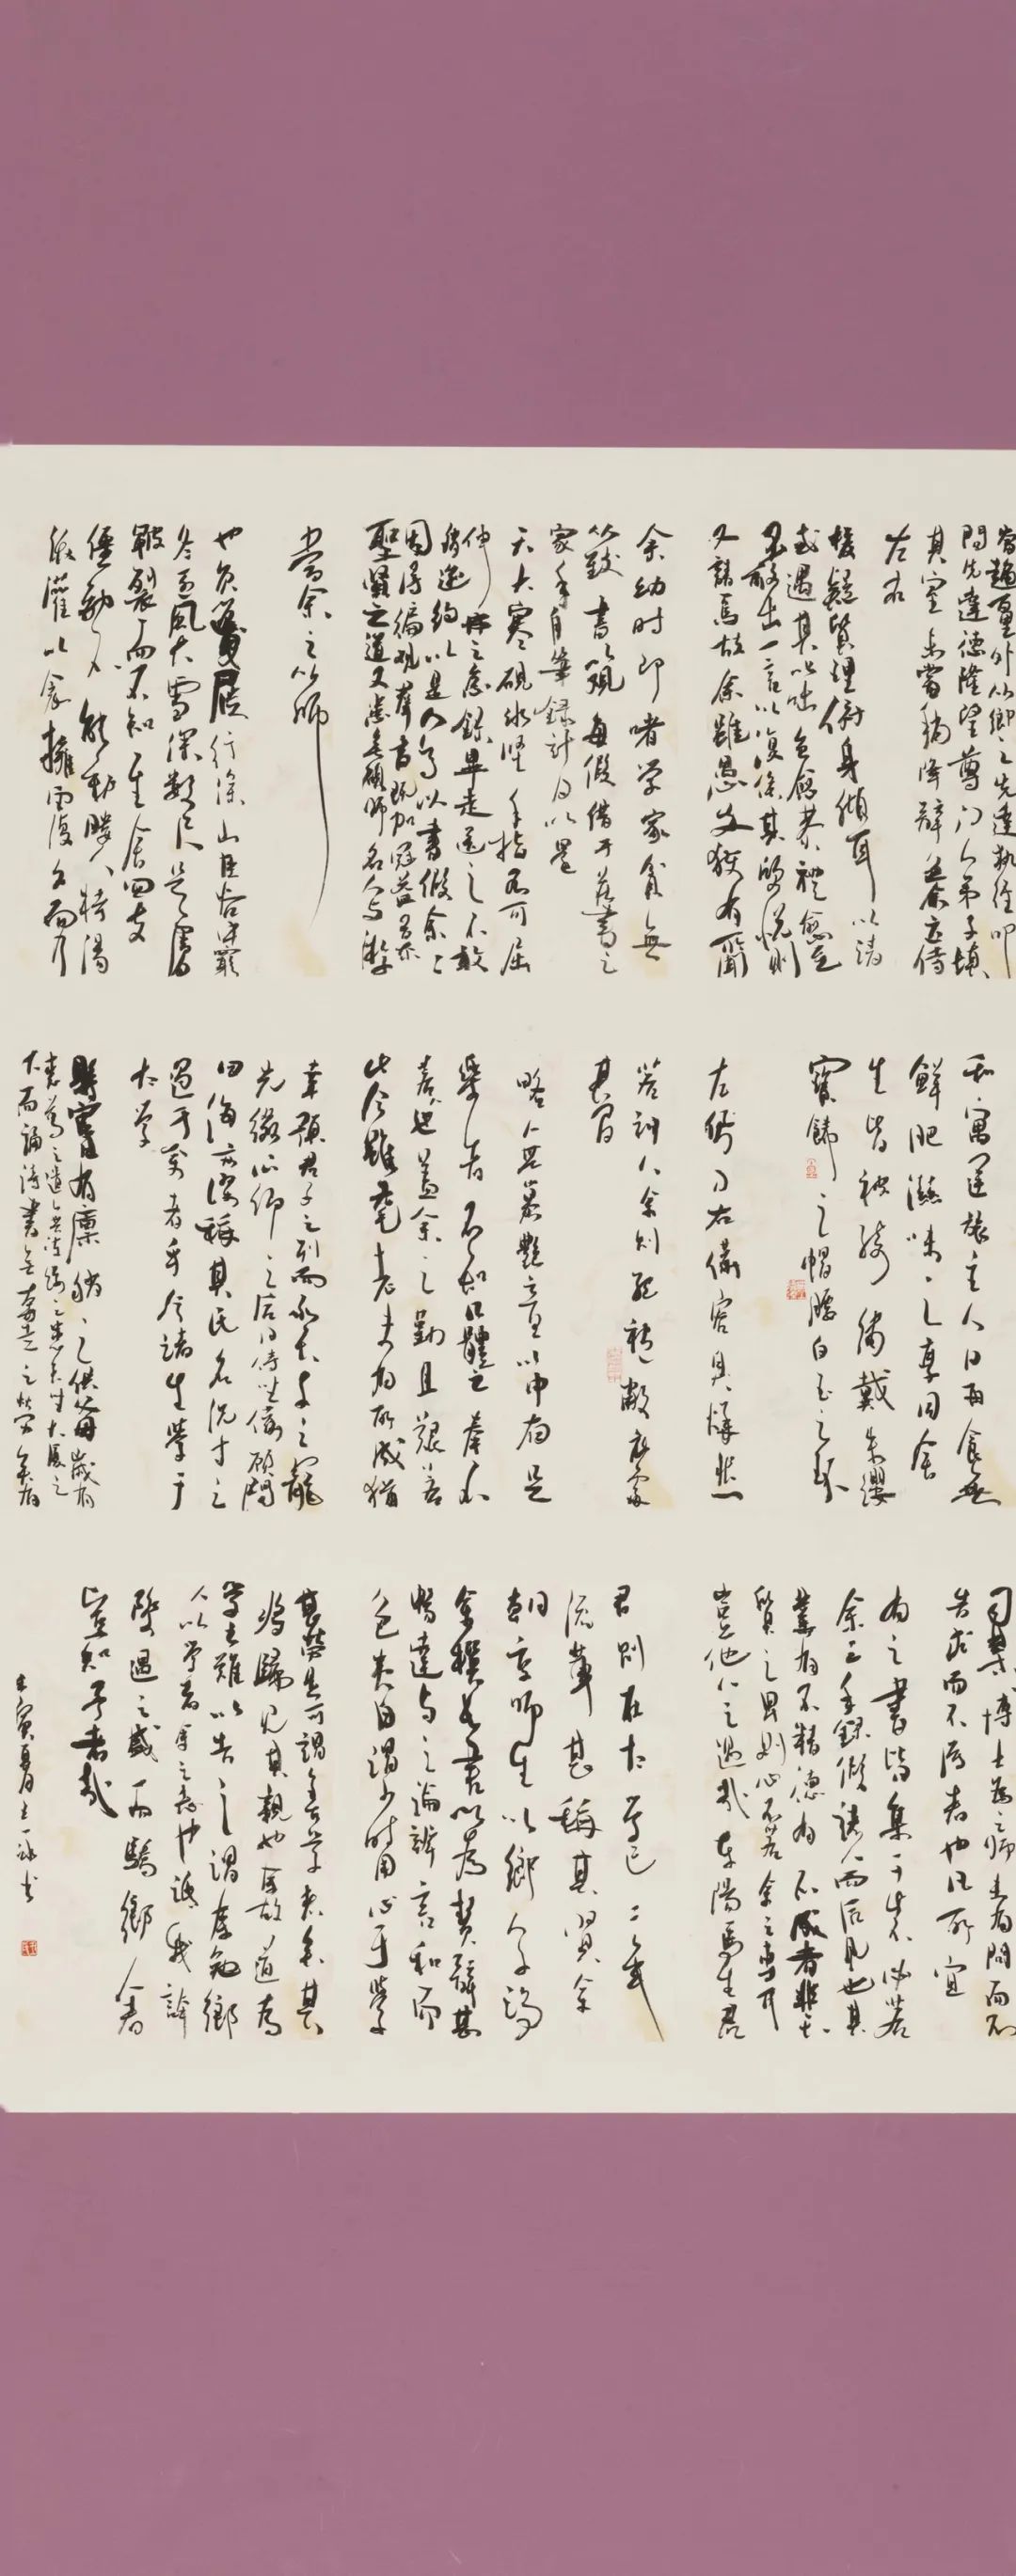 嘗趨百里外從鄉之先達執經叩
問先達德隆望尊門人弟子填
其室未嘗稍降辭色余立侍
左右
援疑質理俯身傾耳以請
或遇其叱咄色愈恭禮愈至
不敢出一言以復俟其欣悅則
又請焉故余雖愚卒獲有所聞
余幼时即嗜学家貧無
從致書以觀每假借于藏書之
家手自筆錄計日以還
天大寒硯冰堅手指不可屈
伸弗之怠錄畢走送之不敢
稍逾約以是人多以書假余々
因得徧觀羣書既加冠益慕
聖賢之道又患無碩師名人与游
當余之從師
也負篋曳屣行深山巨谷中窮
冬烈風大雪深數尺足膚
皸裂而不知至舍四支
僵勁不能動媵人持湯
沃灌以衾擁覆久而乃
和寓逆旅主人日再食無
鮮肥滋味之享同舍
生皆被綺繡戴朱纓
寶飾之帽腰白玉之環
左佩刀右備容臭燁然
若神人余則縕袍敝衣處
其間
略無慕艷意以中有足
樂者不知口體之奉不
若人也蓋余之勤且艱若
此今雖耄老未有所成猶
幸預君子之列而承天子之寵
光綴公卿之后日侍坐備顧問
四海亦謬稱其氏名况才之
過于余者乎今諸生學于
太學
縣官日有廩稍之供父母歲有
裘葛之遺無凍餒之患矣坐大廈之
下而誦詩書無奔走之勞矣有
司業博士為之師未有問而不
告求而不得者也凡所宜
有之書皆集于此不必若
余之手錄假諸人而后見也其
業有不精德有不成者非天
質之卑則心不若余之專耳
豈他人之過哉東陽馬生君
君則在太學已二年
流輩甚稱其賢余
朝京師生以鄉人子謁
余譔長書以為贄辭甚
暢達与之論辨言和而
色夷自謂少時用心于學
甚勞是可謂善學者矣其
將歸見其親也余故道為
學之難以告之謂余勉鄉
人以學者余之志也詆我誇
際遇之盛而驕鄉人者
豈知予者哉
壬寅夏月王一书